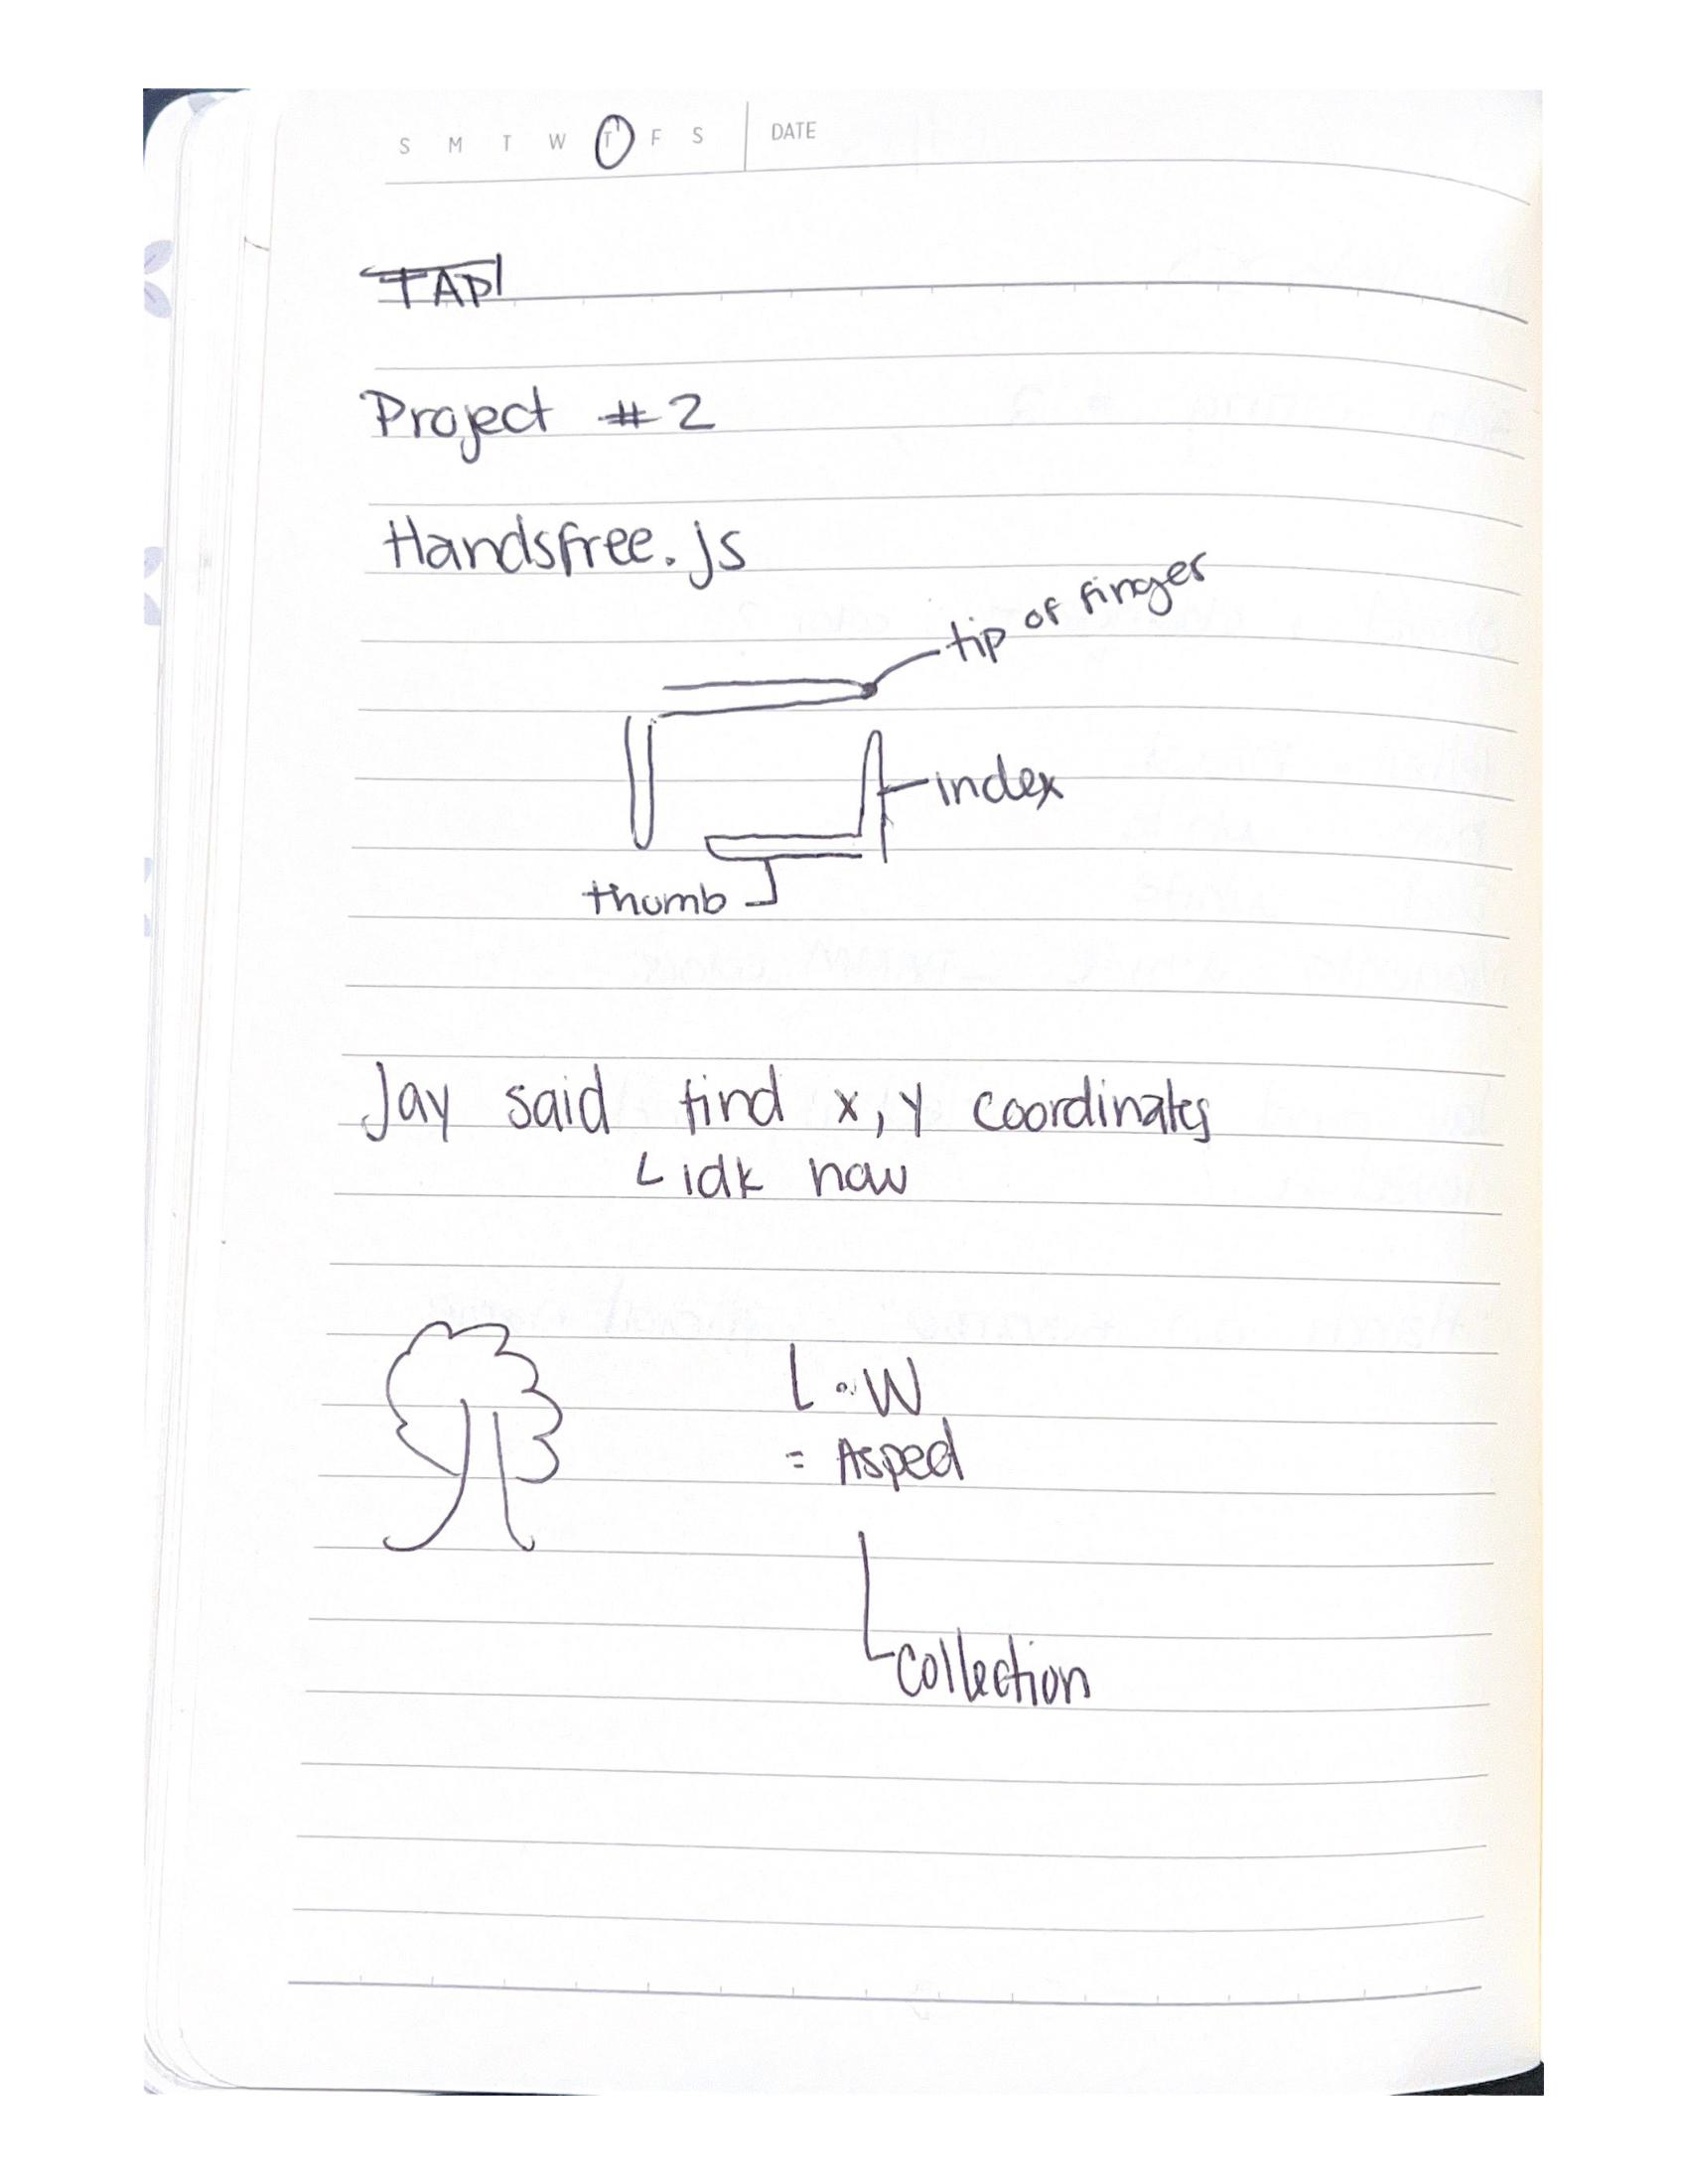 S M T W T F S DATE
TAP
Project #2
Handsfree.js
tip of finger
index
thumb
Jay said find x, y coordinates
idk how
L · W
= Asped
Collection